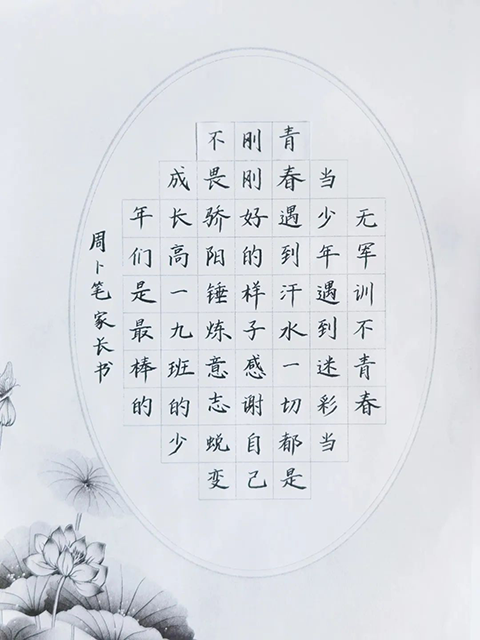 无军训不青春
当少年遇到迷彩当
青春遇到汗水一切都是
刚刚好的样子感谢自己
不畏骄阳锤炼意志蜕变
成长高一九班的少
年们是最棒的
周卜笔家长书